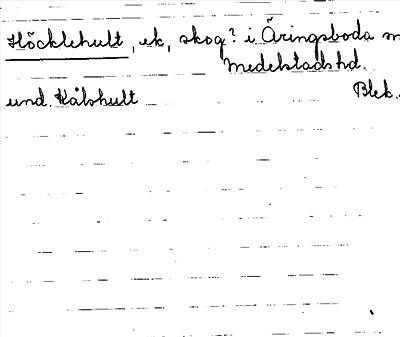 Höcklehult, ek, skog? i Äringsboda m
Medelstads hd.
und. Kålshult Blek.